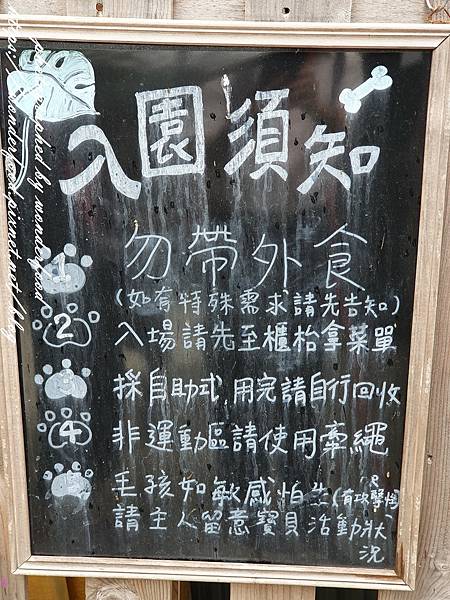 入園須知
1 勿帶外食
(如有特殊需求請先告知)
2 入場請先至櫃枱拿菜單
3 採自助式,用完請自行回收
4 非運動區請使用牽繩
毛孩如敏感怕生(有攻擊性)
請主人留意寶貝活動狀
況